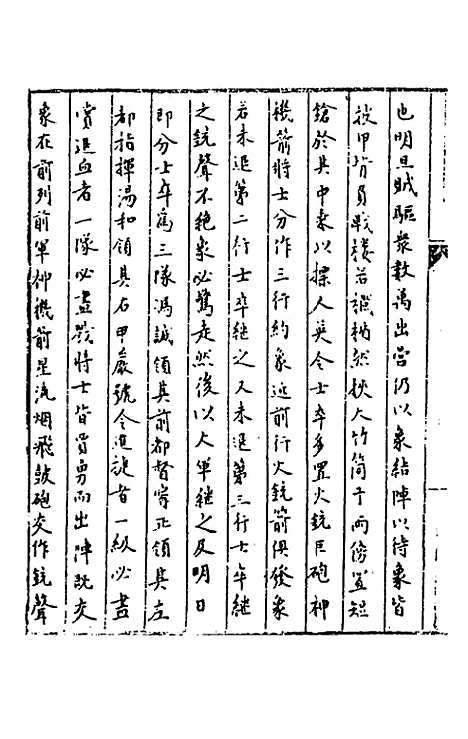 也明旦賊驅衆數萬出營仍以象結陣以待象皆
披甲背負戰樓若欄楯然挾大竹筒于兩傍置短
鎗於其中乘以探人英令士卒多置火銃巨砲神
機箭將士分作三行約象近前行火銃箭俱發象
若未退第二行士卒繼之又未退第三行士卒繼
之銃聲不絕象必驚走然後以大軍繼之及明日
即分士卒為三隊馮誠領其前都督甯正領其左
都指揮湯和領其右甲嚴號令進詖者一級必盡
賞退血者一隊必盡戮將士皆買勇而出陣旣交
象在前列前軍神機箭星流烟飛鼓砲交作銃聲